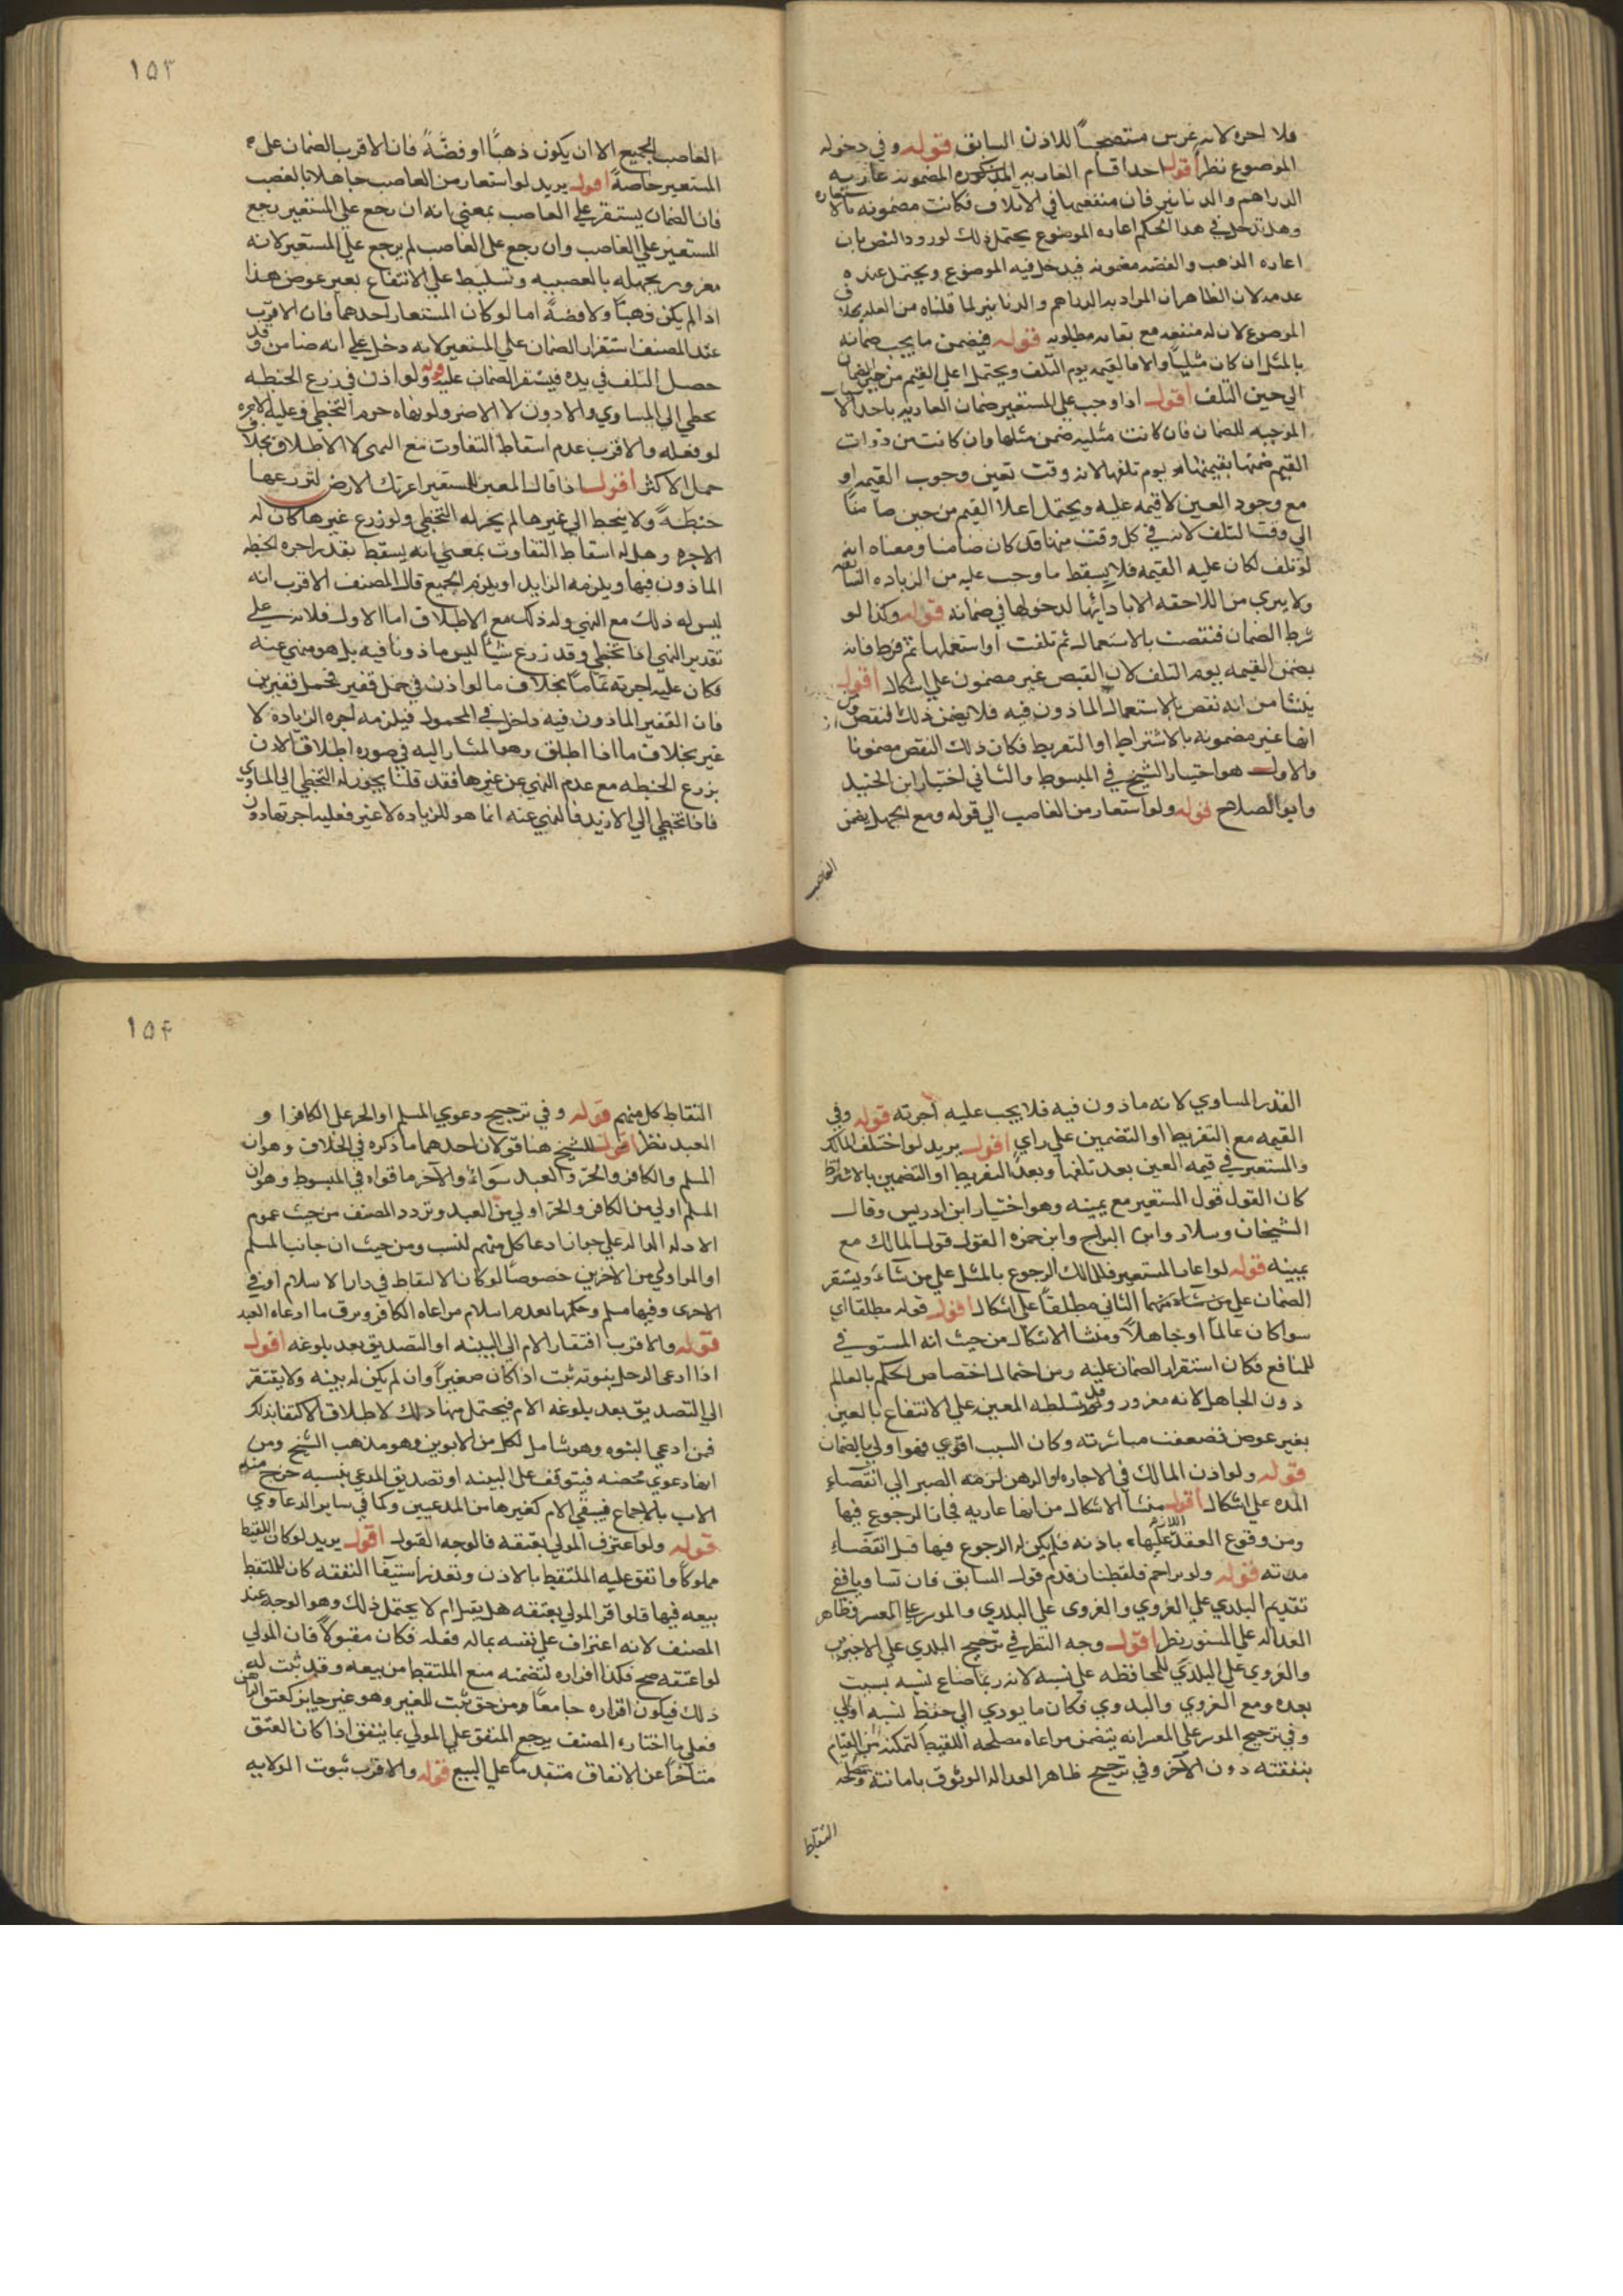 فلا اجره لانه غرس مستصحباً للاذن السابق قوله وفي دخوله
الموضوع نظر اقول احد اقسام العاريه المذكوره المضمونه عاريه
الدراهم والدنانير فان منفعتها في الاتلاف فكانت مضمونه بالاستعاره
وهل تدخل في هذا الحكم اعاره الموضوع يحتمل ذلك لورود النص بان
اعاره الذهب والفضه مضمونه فيدخل فيه الموضوع ويحتمل عنده
عدمه لان الظاهر ان المراد به الدراهم والدنانير لما قلناه من العله بخلاف
الموضوع لان له منفعه مع بقائه مطلوبه قوله فيضمن ما يجب ضمانه
بالمثل ان كان مثلياً والا فالقيمه يوم التلف ويحتمل اعلى القيم من حين الضمان
الي حين التلف اقول اذا وجب علي المستعير ضمان العاريه باحد الا
الموجبه للضمان فان كانت مثليه ضمن مثلها وان كانت من ذوات
القيم ضمنها بقيمتها يوم تلفها لانه وقت تعين وجوب القيمه او
مع وجود العين لا قيمه عليه ويحتمل اعلا القيم من حين ضامنا
الي وقت التلف لانه في كل وقت منها قد كان ضامنا ومعناه انه
لو تلف لكان عليه القيمه فلا يسقط ما وجب عليه من الزياده السابقه
ولا يبري من اللاحقه الا بادائها لدخولها في ضمانه قوله وكذا لو
شرط الضمان فنقصت بالاستعمال ثم تلفت او استعملها ثم فرط فانه
يضمن القيمه يوم التلف لان القبض غير مضمون علي اشكال اقول
ينشا من انه نقص بالاستعمال الماذون فيه فلا يضمن ذلك النقص ومن
انها غير مضمونه بالاشتراط او التفريط فكان ذلك النقص مضمونا
والاول هو اختيار الشيخ في المبسوط والثاني اختيار ابن الجنيد
وابو الصلاح قوله ولو استعار من الغاصب الي قوله ومع الجهل يضمن
الغاصب
١٥٣
الغاصب الجميع الا ان يكون ذهباً او فضةً فان الاقرب الضمان على
المستعير خاصةً اقول يريد لو استعار من الغاصب جاهلا بالغصب
فان الضمان يستقر علي الغاصب بمعني انه ان رجع علي المستعير رجع
المستعير علي الغاصب وان رجع على الغاصب لم يرجع علي المستعير لانه
مغرور بجهله بالغصبيه وتسليط علي الانتفاع بغير عوض هذا
اذا لم يكن ذهباً ولا فضةً اما لو كان المستعار احدهما فان الاقرب
عند المصنف استقرار الضمان علي المستعير لانه دخل علي انه ضامن وقد
حصل التلف في يده فيستقر الضمان عليه قوله ولو اذن في زرع الحنطه
تخطي الي المساوي والادون لا الاضر ولو نهاه حرم التخطي وعليه الاجره
لو فعله والاقرب عدم اسقاط التفاوت مع النهي لا الاطلاق بخلاف
حمل الاكثر اقول اذا قال المعير للمستعير اعرتك الارض لتزرعها
حنطةً ولا يتخط الي غيرها لم يجز له التخطي ولو زرع غيرها كان له
الاجره وهل له اسقاط التفاوت بمعني انه يسقط بقدر اجره الحنطه
الماذون فيها ويلزمه الزايد او يلزم الجميع قال المصنف الاقرب انه
ليس له ذلك مع النهي وله ذلك مع الاطلاق اما الاول فلانه علي
تقدير النهي اذا تخطي وقد زرع شيئاً ليس ماذونا فيه بل هو منهي عنه
فكان عليه اجرته تماما بخلاف ما لو اذن في حمل قفيز فحمل قفيزين
فان القفيز الماذون فيه داخل في المحمول فيلزمه اجره الزياده لا
غير بخلاف ما اذا اطلق وهو المشار اليه في صوره اطلاق الاذن
بزرع الحنطه مع عدم النهي عن غيرها فقد قلنا يجوز له التخطي الي المساوي
فاذا تخطي الي الازيد فالمنهي عنه انما هو للزياده لا غير فعليه اجرتها دون
القدر المساوي لانه ماذون فيه فلا يجب عليه اجرته قوله وفي
القيمه مع التفريط او التضمين علي راي اقول يريد لو اختلف المالك
والمستعير في قيمه العين بعد تلفها وبعد التفريط او التضمين بالاشتراط
كان القول قول المستعير مع يمينه وهو اختيار ابن ادريس وقال
الشيخان وسلار وابن البراج وابن حمزه القول قول المالك مع
يمينه قوله لو اعار المستعير فللمالك الرجوع بالمثل علي من شاء ويستقر
الضمان علي من شاء منهما الثاني مطلقاً علي اشكال اقول قوله مطلقا اي
سوا كان عالماً او جاهلاً ومنشا الاشكال من حيث انه المستوفي
للمنافع فكان استقرار الضمان عليه ومن احتمال اختصاص الحكم بالعالم
دون الجاهل لانه مغرور وقد سلطه المعير علي الانتفاع بالعين
بغير عوض فضعفت مباشرته وكان السبب اقوي فهو اولي بالضمان
قوله ولو اذن المالك في الاجاره او الرهن لزمه الصبر الي انقضاء
المده علي اشكال اقول منشا الاشكال من انها عاريه فجاز الرجوع فيها
ومن وقوع العقد اللازم عليها باذنه فلم يكن له الرجوع فيها قبل انقضاء
مدته قوله ولو تزاحم ملتقطان قدم قول السابق فان تساويا ففي
تقديم البلدي علي القروي والقروي علي البدوي والموسر علي المعسر وظاهر
العداله علي المستور نظر اقول وجه النظر في ترجيح البلدي علي الاخيرين
والقروي علي البدوي للمحافظه علي نسبه لانه ربما ضاع نسبه بسبب
بعده ومع القروي والبدوي فكان ما يودي الي حفظ نسبه اولي
وفي ترجيح الموسر علي المعسر انه يتضمن مراعاه مصلحه اللقيط لتمكنه من القيام
بنفقته دون الآخر وفي ترجيح ظاهر العداله الوثوق بامانته
التقاط
١٥٤
التقاط كل منهم قوله وفي ترجيح دعوي المسلم او الحر علي الكافر او
العبد نظر اقول للشيخ هنا قولان احدهما ما ذكره في الخلاف وهو ان
المسلم والكافر والحر والعبد سواء والآخر ما قواه في المبسوط وهو ان
المسلم اولي من الكافر والحر اولي من العبد وتردد المصنف من حيث عموم
الادله الداله علي جواز ادعا كل منهم للنسب ومن حيث ان جانب المسلم
او الحر اولي من الآخرين خصوصاً لو كان الالتقاط في دار الاسلام او في
الاخرى وفيها مسلم وحكم بعدم اسلام من ادعاه الكافر وبرق ما ادعاه العبد
قوله والاقرب افتقار الام الي البينه او التصديق بعد بلوغه اقول
اذا ادعي الرجل بنوته ثبت اذا كان صغيراً وان لم يكن له بينه ولا يفتقر
الي التصديق بعد بلوغه الام فيحتمل فيها ذلك لاطلاق الاكتفا بذلك
فمن ادعي البنوه وهو شامل لكل من الابوين وهو مذهب الشيخ ومن
انها دعوي محضه فيتوقف على البينه او تصديق المدعي بنسبه خرج منه
الاب بالاجماع فيبقي الام كغيرها من المدعيين وكما في ساير الدعاوي
قوله ولو اعترف المولي بعتقه فالوجه القبول اقول يريد لو كان اللقيط
مملوكاً وانفق عليه الملتقط بالاذن وتعذر استيفا النفقه كان للملتقط
بيعه فيها فلو اقر المولي بعتقه هل يقبل ام لا يحتمل ذلك وهو الوجه عند
المصنف لانه اعتراف علي نفسه بماله فعله فكان مقبولاً فان المولي
لو اعتقه صح فكذا اقراره لتضمنه منع الملتقط من بيعه وقد ثبت له
ذلك فيكون اقراره جامعاً ومن حق ثبت للغير وهو غير جايز كعتق الراهن
فعلي ما اختاره المصنف يرجع المنفق علي المولي بما ينفق اذا كان العتق
متاخراً عن الانفاق متقدماً علي البيع قوله والاقرب ثبوت الولايه